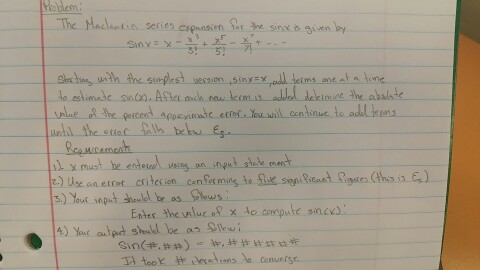 Problem:
The Maclaurin series expansion for the sinx is given by
sinx = x - x³/3! + x⁵/5! - x⁷/7! + ...
Starting with the simplest version, sinx=x, add terms one at a time
to estimate sin(x). After each new term is added determine the absolute
value of the percent approximate error. You will continue to add terms
until the error falls below Es.
Requirements
1.) x must be entered using an input statement
2.) Use an error criterion conforming to five significant figures (this is Es)
3.) Your input should be as follows:
Enter the value of x to compute sin(x):
4.) Your output should be as follow:
Sin(#.##) = #.######
It took # iterations to converge